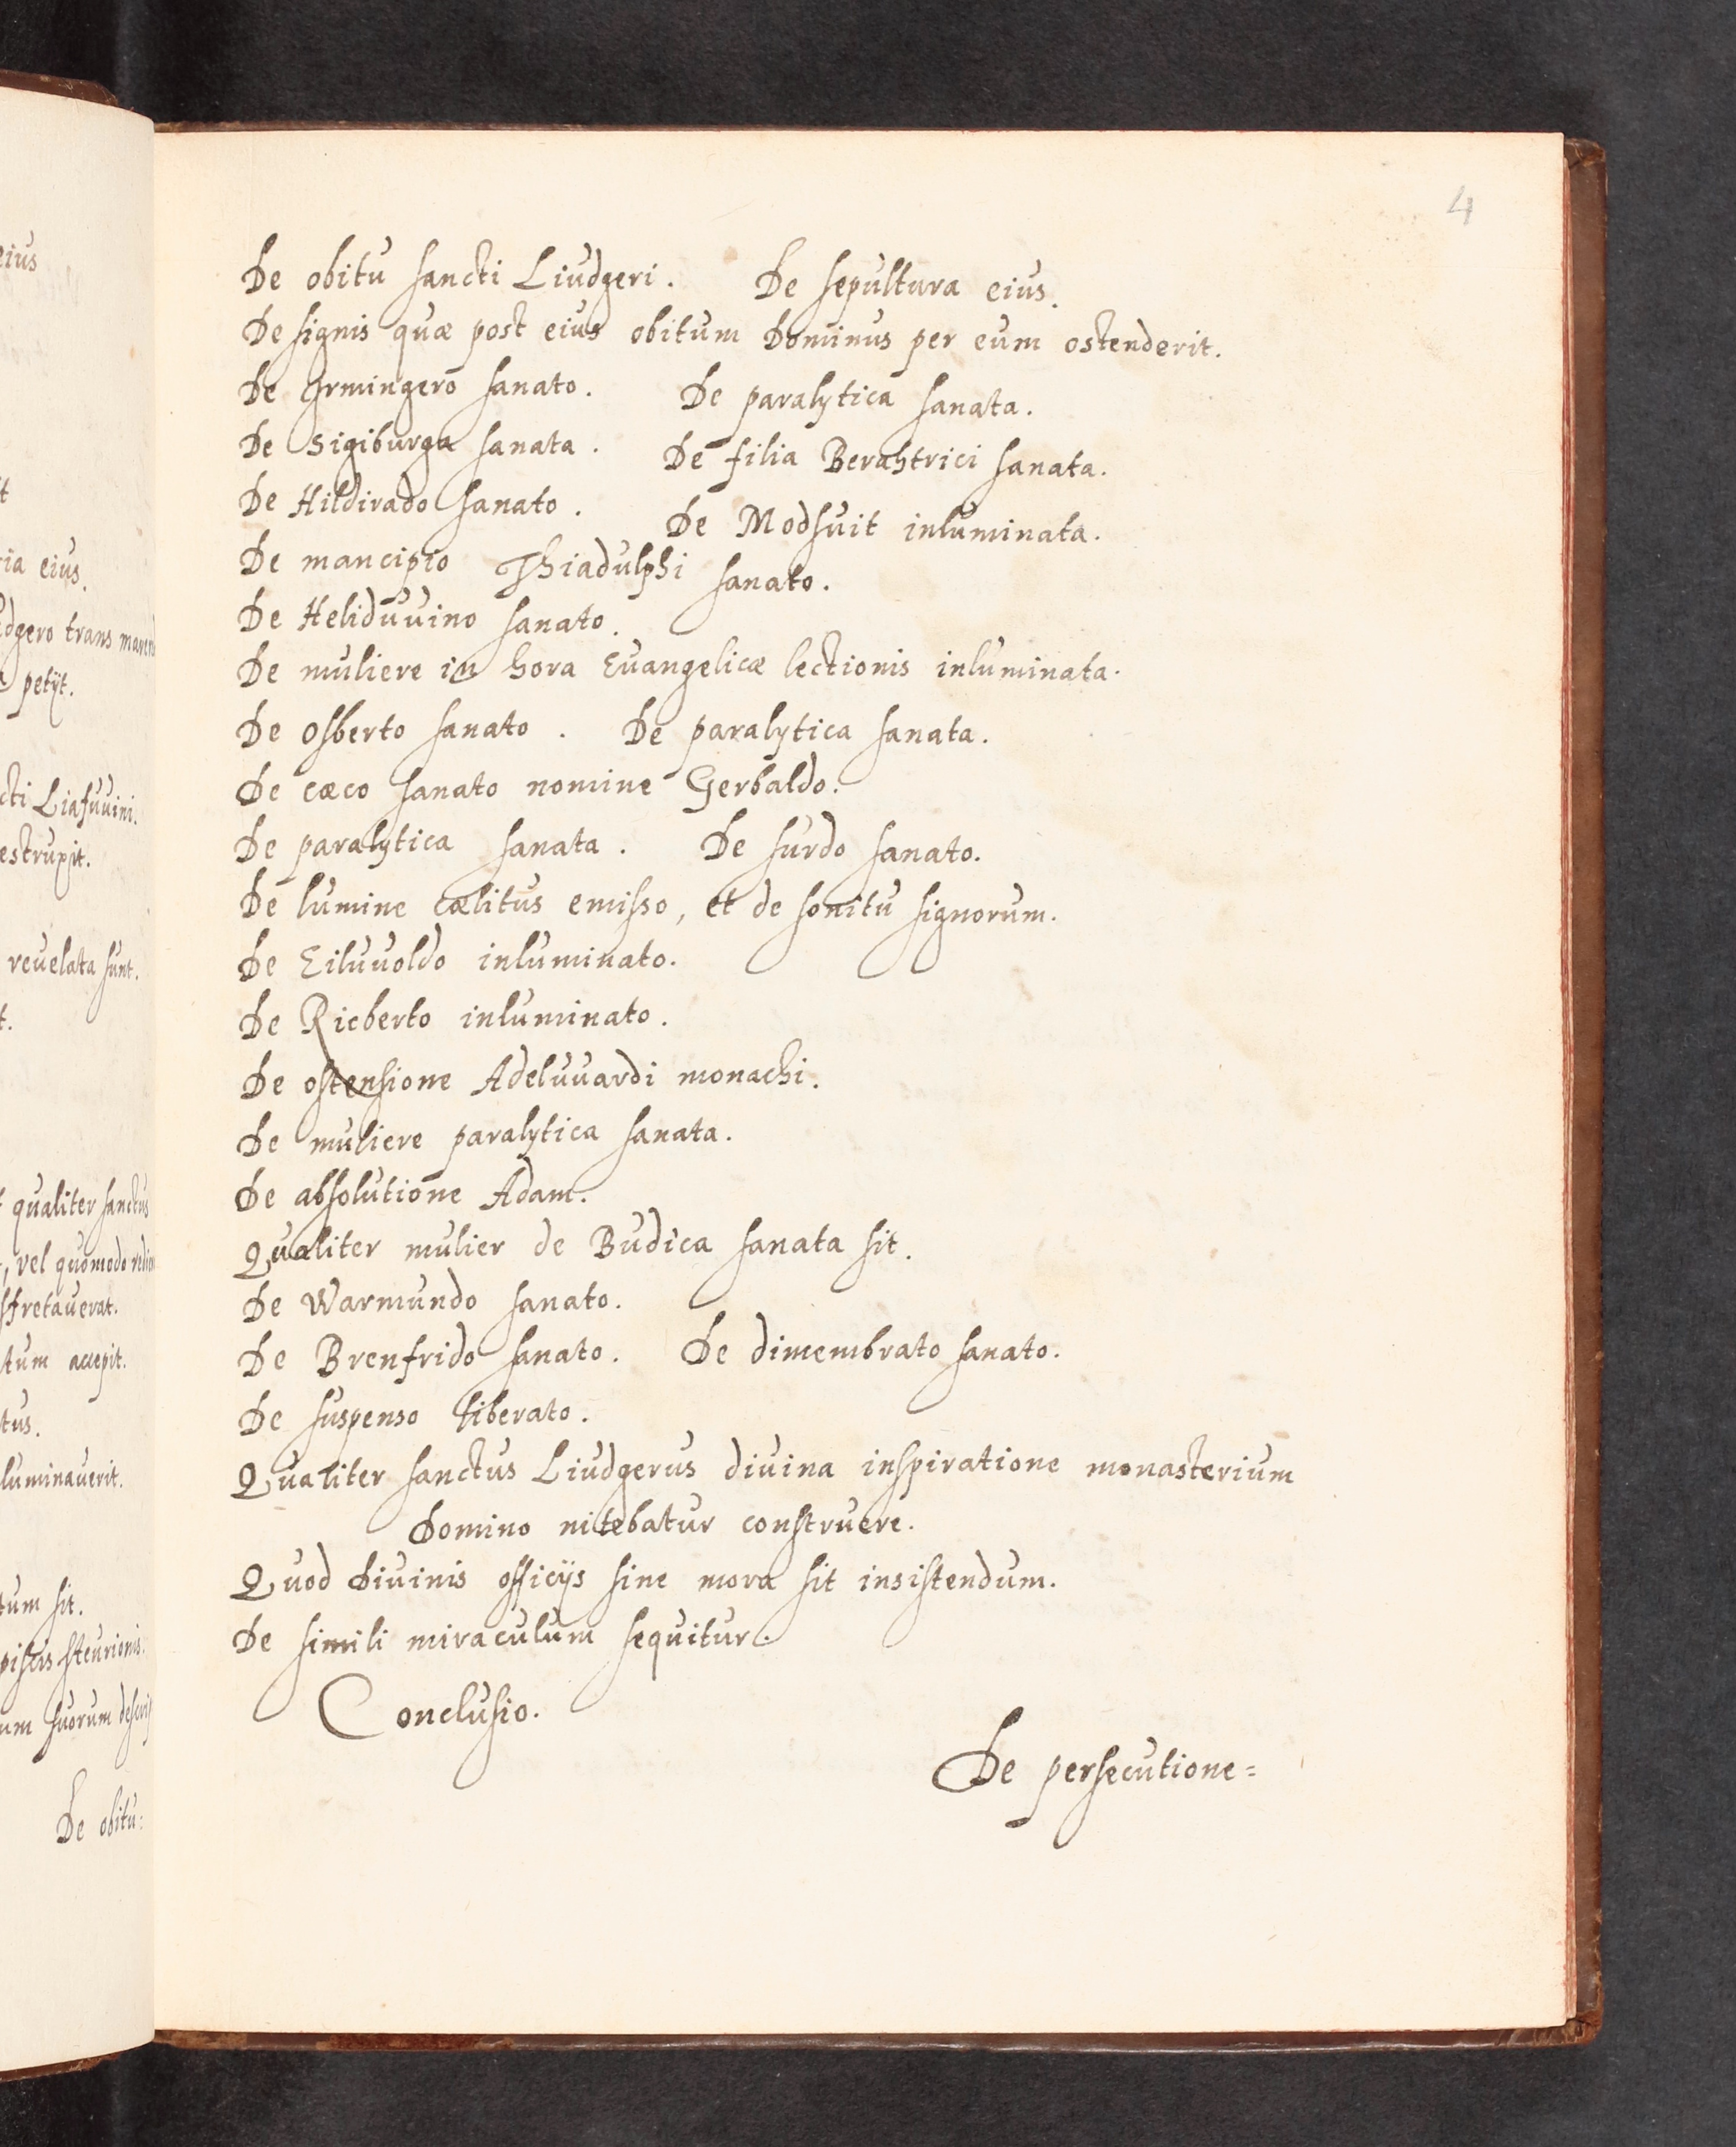 4
De obitu sancti Liudgeri. De sepultura eius.
De signis quæ post eius obitum Dominus per eum ostenderit.
De Irmingero sanato. De paralytica sanata.
De Sigiburga sanata. De filia Berahtrici sanata.
De Hildirado sanato. De Modsuit inluminata.
De mancipio Thiadulphi sanato.
De Heliduuino sanato.
De muliere in hora Euangelicæ lectionis inluminata.
De Osberto sanato. De paralytica sanata.
De cæco sanato nomine Gerbaldo.
De paralytica sanata. De surdo sanato.
De lumine cælitus emisso, et de sonitu signorum.
De Eiluuoldo inluminato.
De Ricberto inluminato.
De ostensione Adeluuardi monachi.
De muliere paralytica sanata.
De absolutione Adam.
Qualiter mulier de Budica sanata sit.
De Warmundo sanato.
De Brenfrido sanato. De dimembrato sanato.
De suspenso liberato.
Qualiter sanctus Liudgerus diuina inspiratione monasterium
Domino nitebatur construere.
Quod Diuinis officijs sine mora sit insistendum.
De simili miraculum sequitur.
Conclusio.
De persecutione=
eius
ria eius.
dgero trans
petijt.
cti Liafuuini.
estrupit.
reuelata sunt.
qualiter sanctus
, vel quomodo
sfretauerat.
tum accepit.
tus.
luminauerit.
tum sit.
piscis steurionis.
um suorum
De obitu=